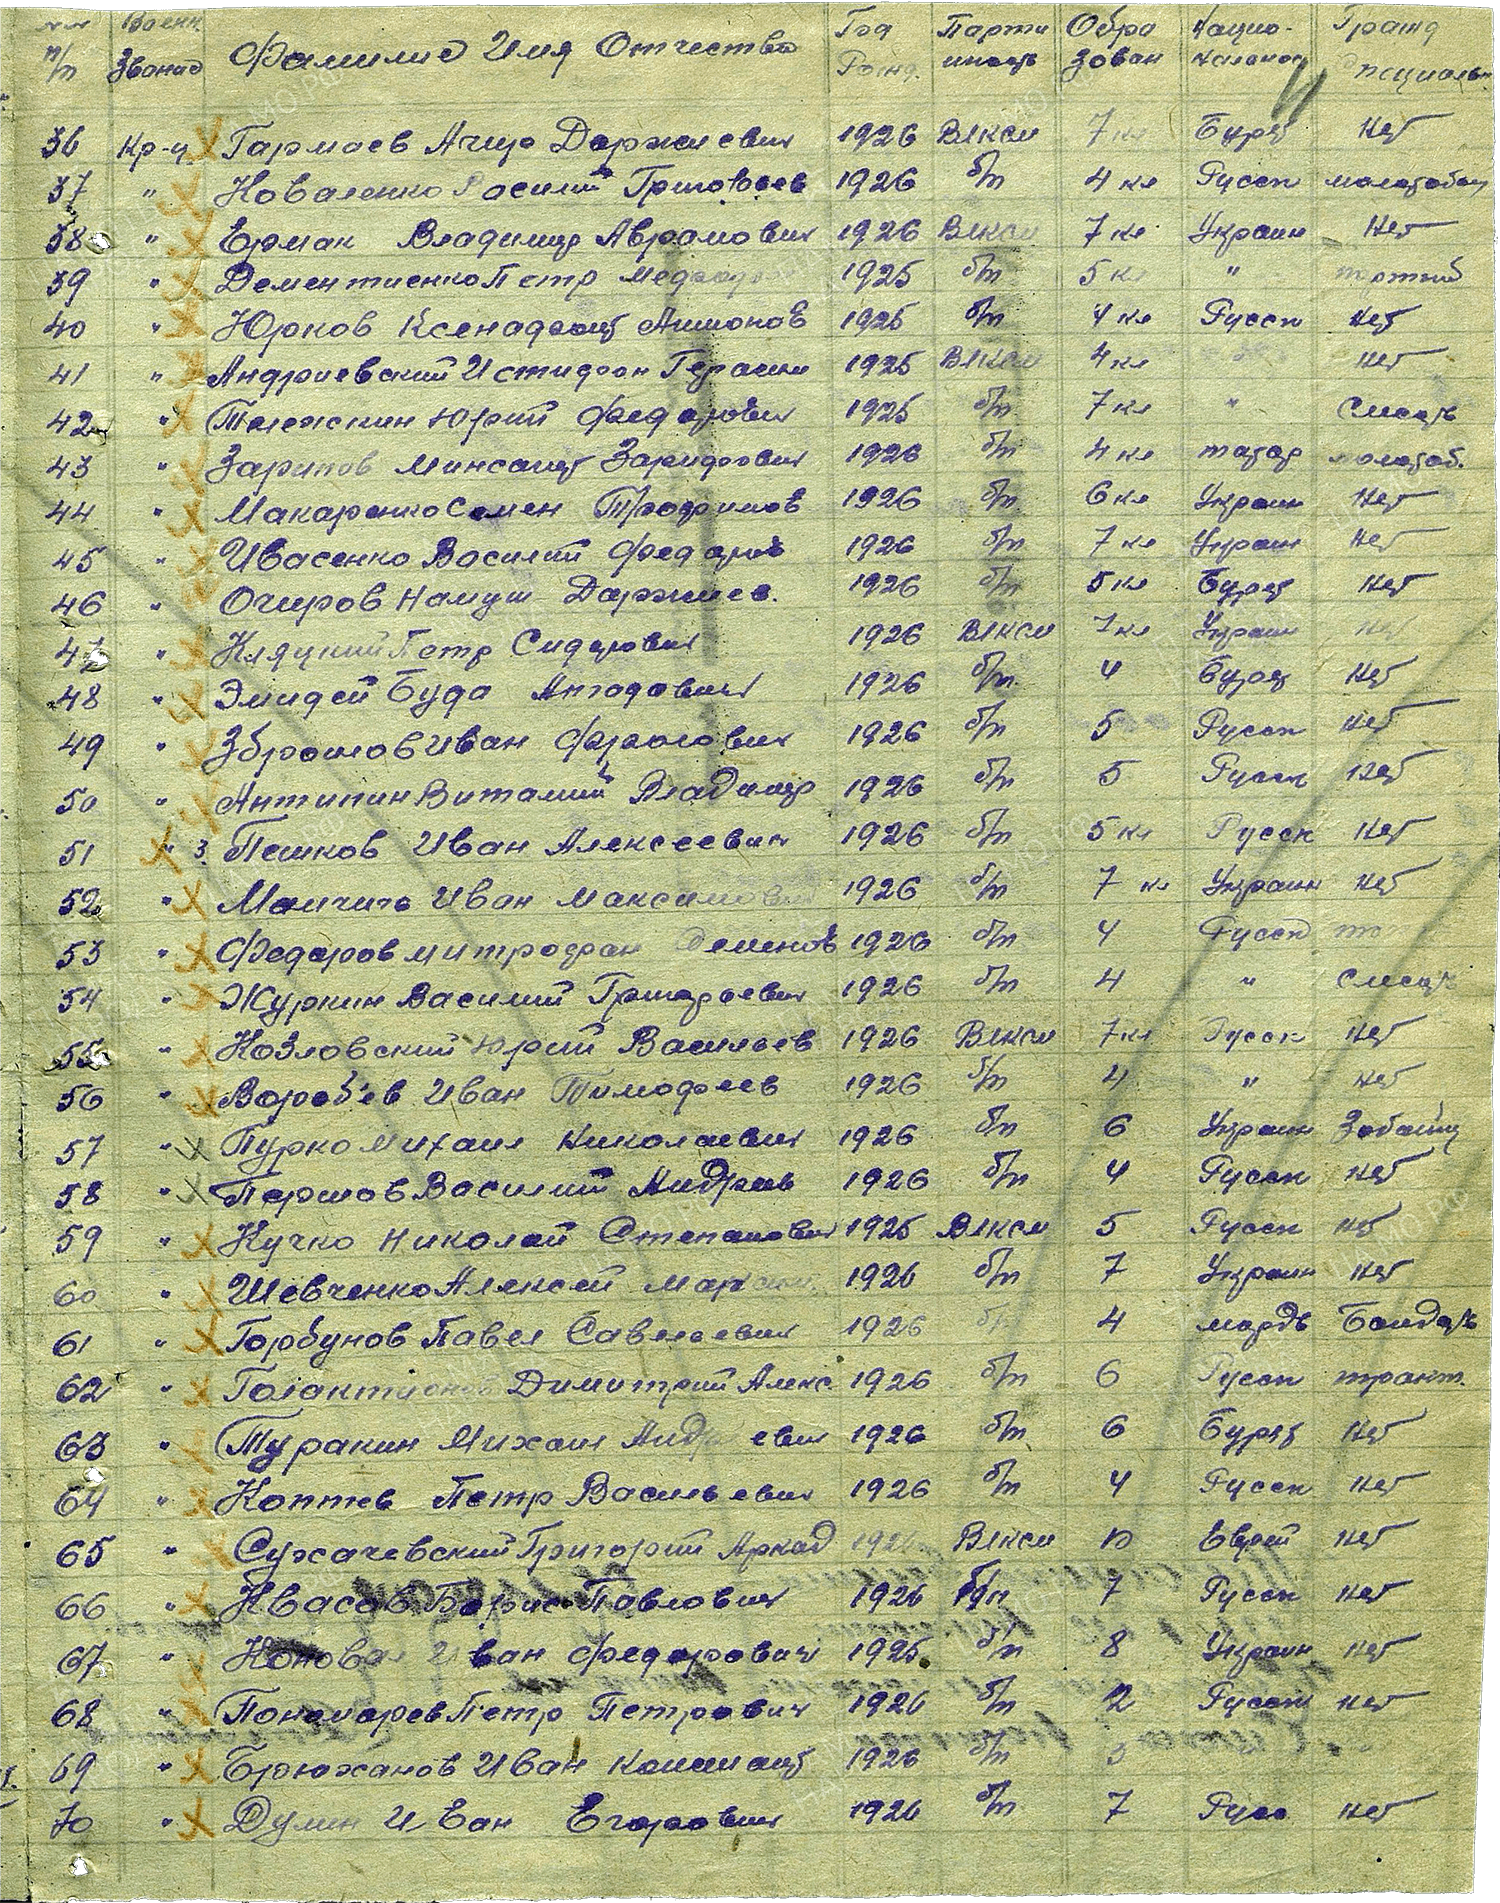 №№ Воен. Год Парти Обра Нацио- Гражд
п/п Звание Фамилие Имя Отчество Рожд. иность зован нальность специальн.
36 Кр-ц Гармаев Ачир Доржиевич 1926 ВЛКСМ 7 кл Бурят Нет
37 " Коваленко Василий Григорьев 1926 б/п 4 кл Русск молотобоец
38 " Ермак Владимир Аврамович 1926 ВЛКСМ 7 кл Украин Нет
39 " Дементиенко Петр 1925 б/п 5 кл "
40 " Юрков Ксенафонт Антонов 1925 б/п 4 кл Русск Нет
41 " Андриевский Истифан Герасим 1925 ВЛКСМ 4 кл " Нет
42 " Тележкин Юрий Федорович 1925 б/п 7 кл " Слесарь
43 " Зарипов Минсагит Зарифович 1926 б/п 4 кл татар молотоб.
44 " Макаренко Семен Трофимов 1926 б/п 6 кл Украин Нет
45 " Ивасенко Василий Федоров 1926 б/п 7 кл Украин Нет
46 " Очиров Намуш Даржиев. 1926 б/п 5 кл Бурят Нет
47 " Кляцкий Петр Сидорович 1926 ВЛКСМ 7 кл Украин Нет
48 " Эмидей Буда Ангадович 1926 б/п. 4 Бурят Нет
49 " Зброшов Иван Фролович 1926 б/п 5 Русск Нет
50 " Антипин Виталий Владимир 1926 б/п 5 Русск Нет
51 " з. Пешков Иван Алексеевич 1926 б/п 5 кл Русск Нет
52 " Иван Максимович 1926 б/п 7 кл Украин Нет
53 " Федоров Митрофан Семенов 1926 б/п 4 Русск
54 " Журкин Василий Григорьевич 1926 б/п 4 " Слесарь
55 " Козловский Юрий Васильев 1926 ВЛКСМ 7 кл Русск Нет
56 " Вороб'ев Иван Тимофеев 1926 б/п 4 " Нет
57 " Пурко Михаил Николаевич 1926 б/п 6 Украин Забойщ
58 " Паршов Василий Андреев 1926 б/п 4 Русск Нет
59 " Кучко Николай Степанович 1925 ВЛКСМ 5 Русск Нет
60 " Шевченко Алексей 1926 б/п 7 Украин Нет
61 " Горбунов Павел Савельевич 1926 б/п 4 мордв Бондарь
62 " Галактионов Димитрий Алекс. 1926 б/п 6 Русск тракт.
63 " Туракин Михаил Андреевич 1926 б/п 6 Бурят Нет
64 " Коптев Петр Васильевич 1926 б/п 4 Русск Нет
65 " Сухачевский Григорий Аркад 1926 ВЛКСМ 10 Еврей Нет
66 " Квасов Борис Павлович 1926 б/п 7 Русск Нет
67 " Коновал Иван Федорович 1925 б/п 8 Украин Нет
68 " Пономарев Петр Петрович 1926 б/п 2 Русск Нет
69 " Брюханов Иван 1926 б/п 5
70 " Дулин Иван Егорович 1926 б/п 7 Русс Нет